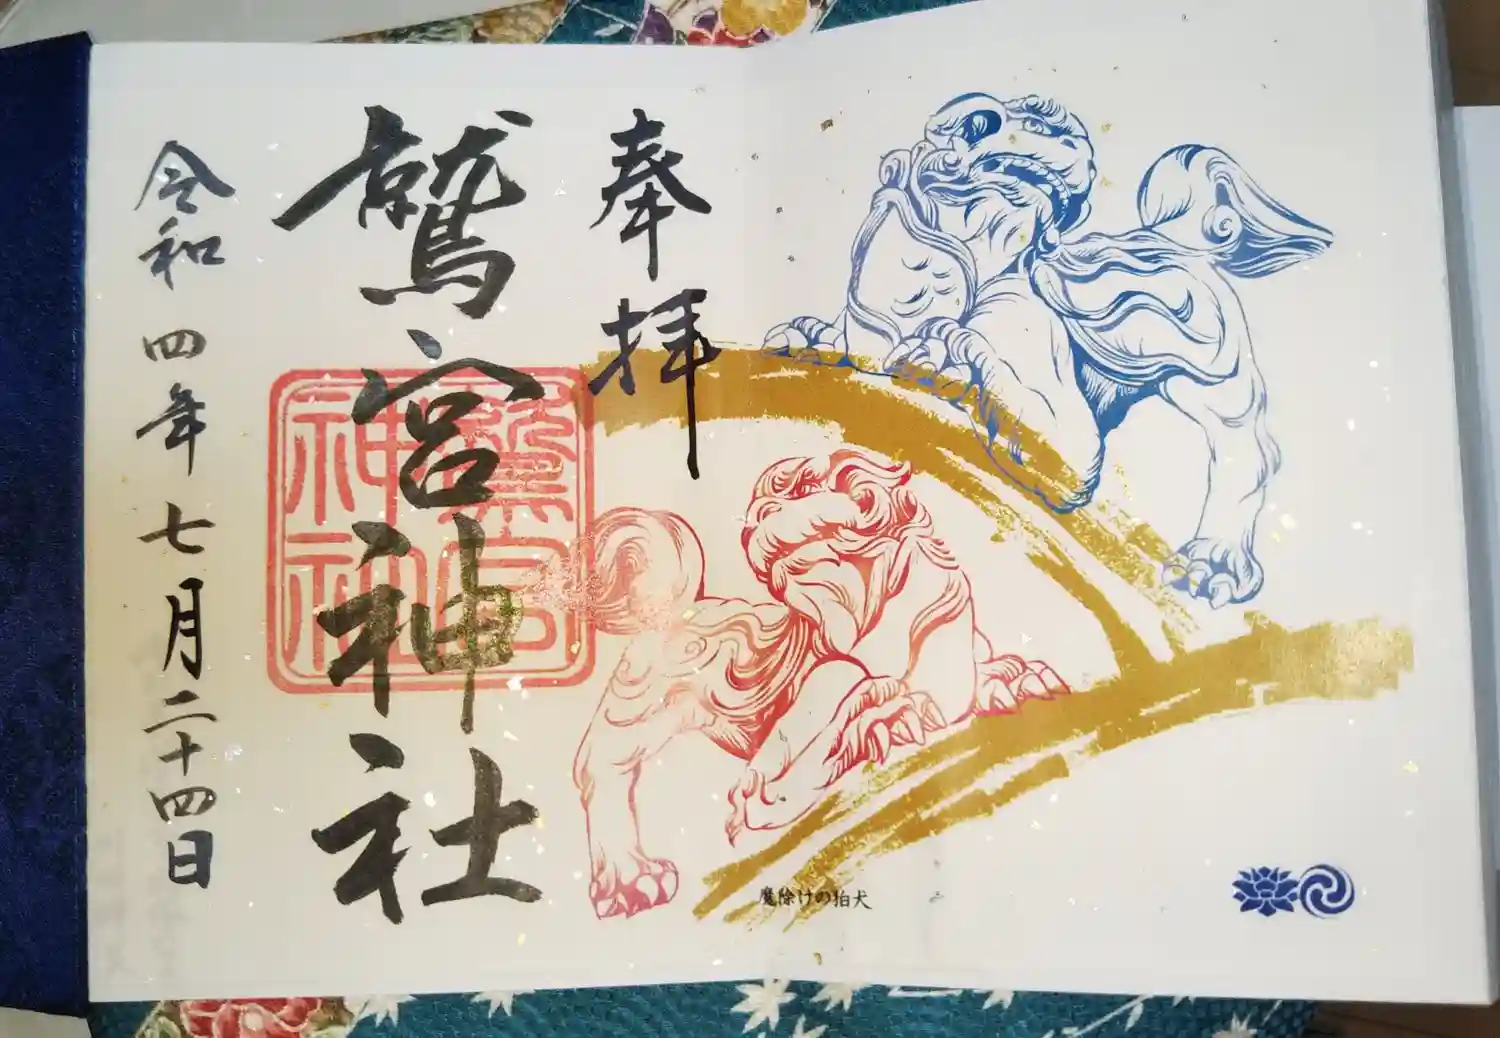 奉拝
鷲宮神社
令和四年七月二十四日
鷲宮
神社
魔除けの狛犬